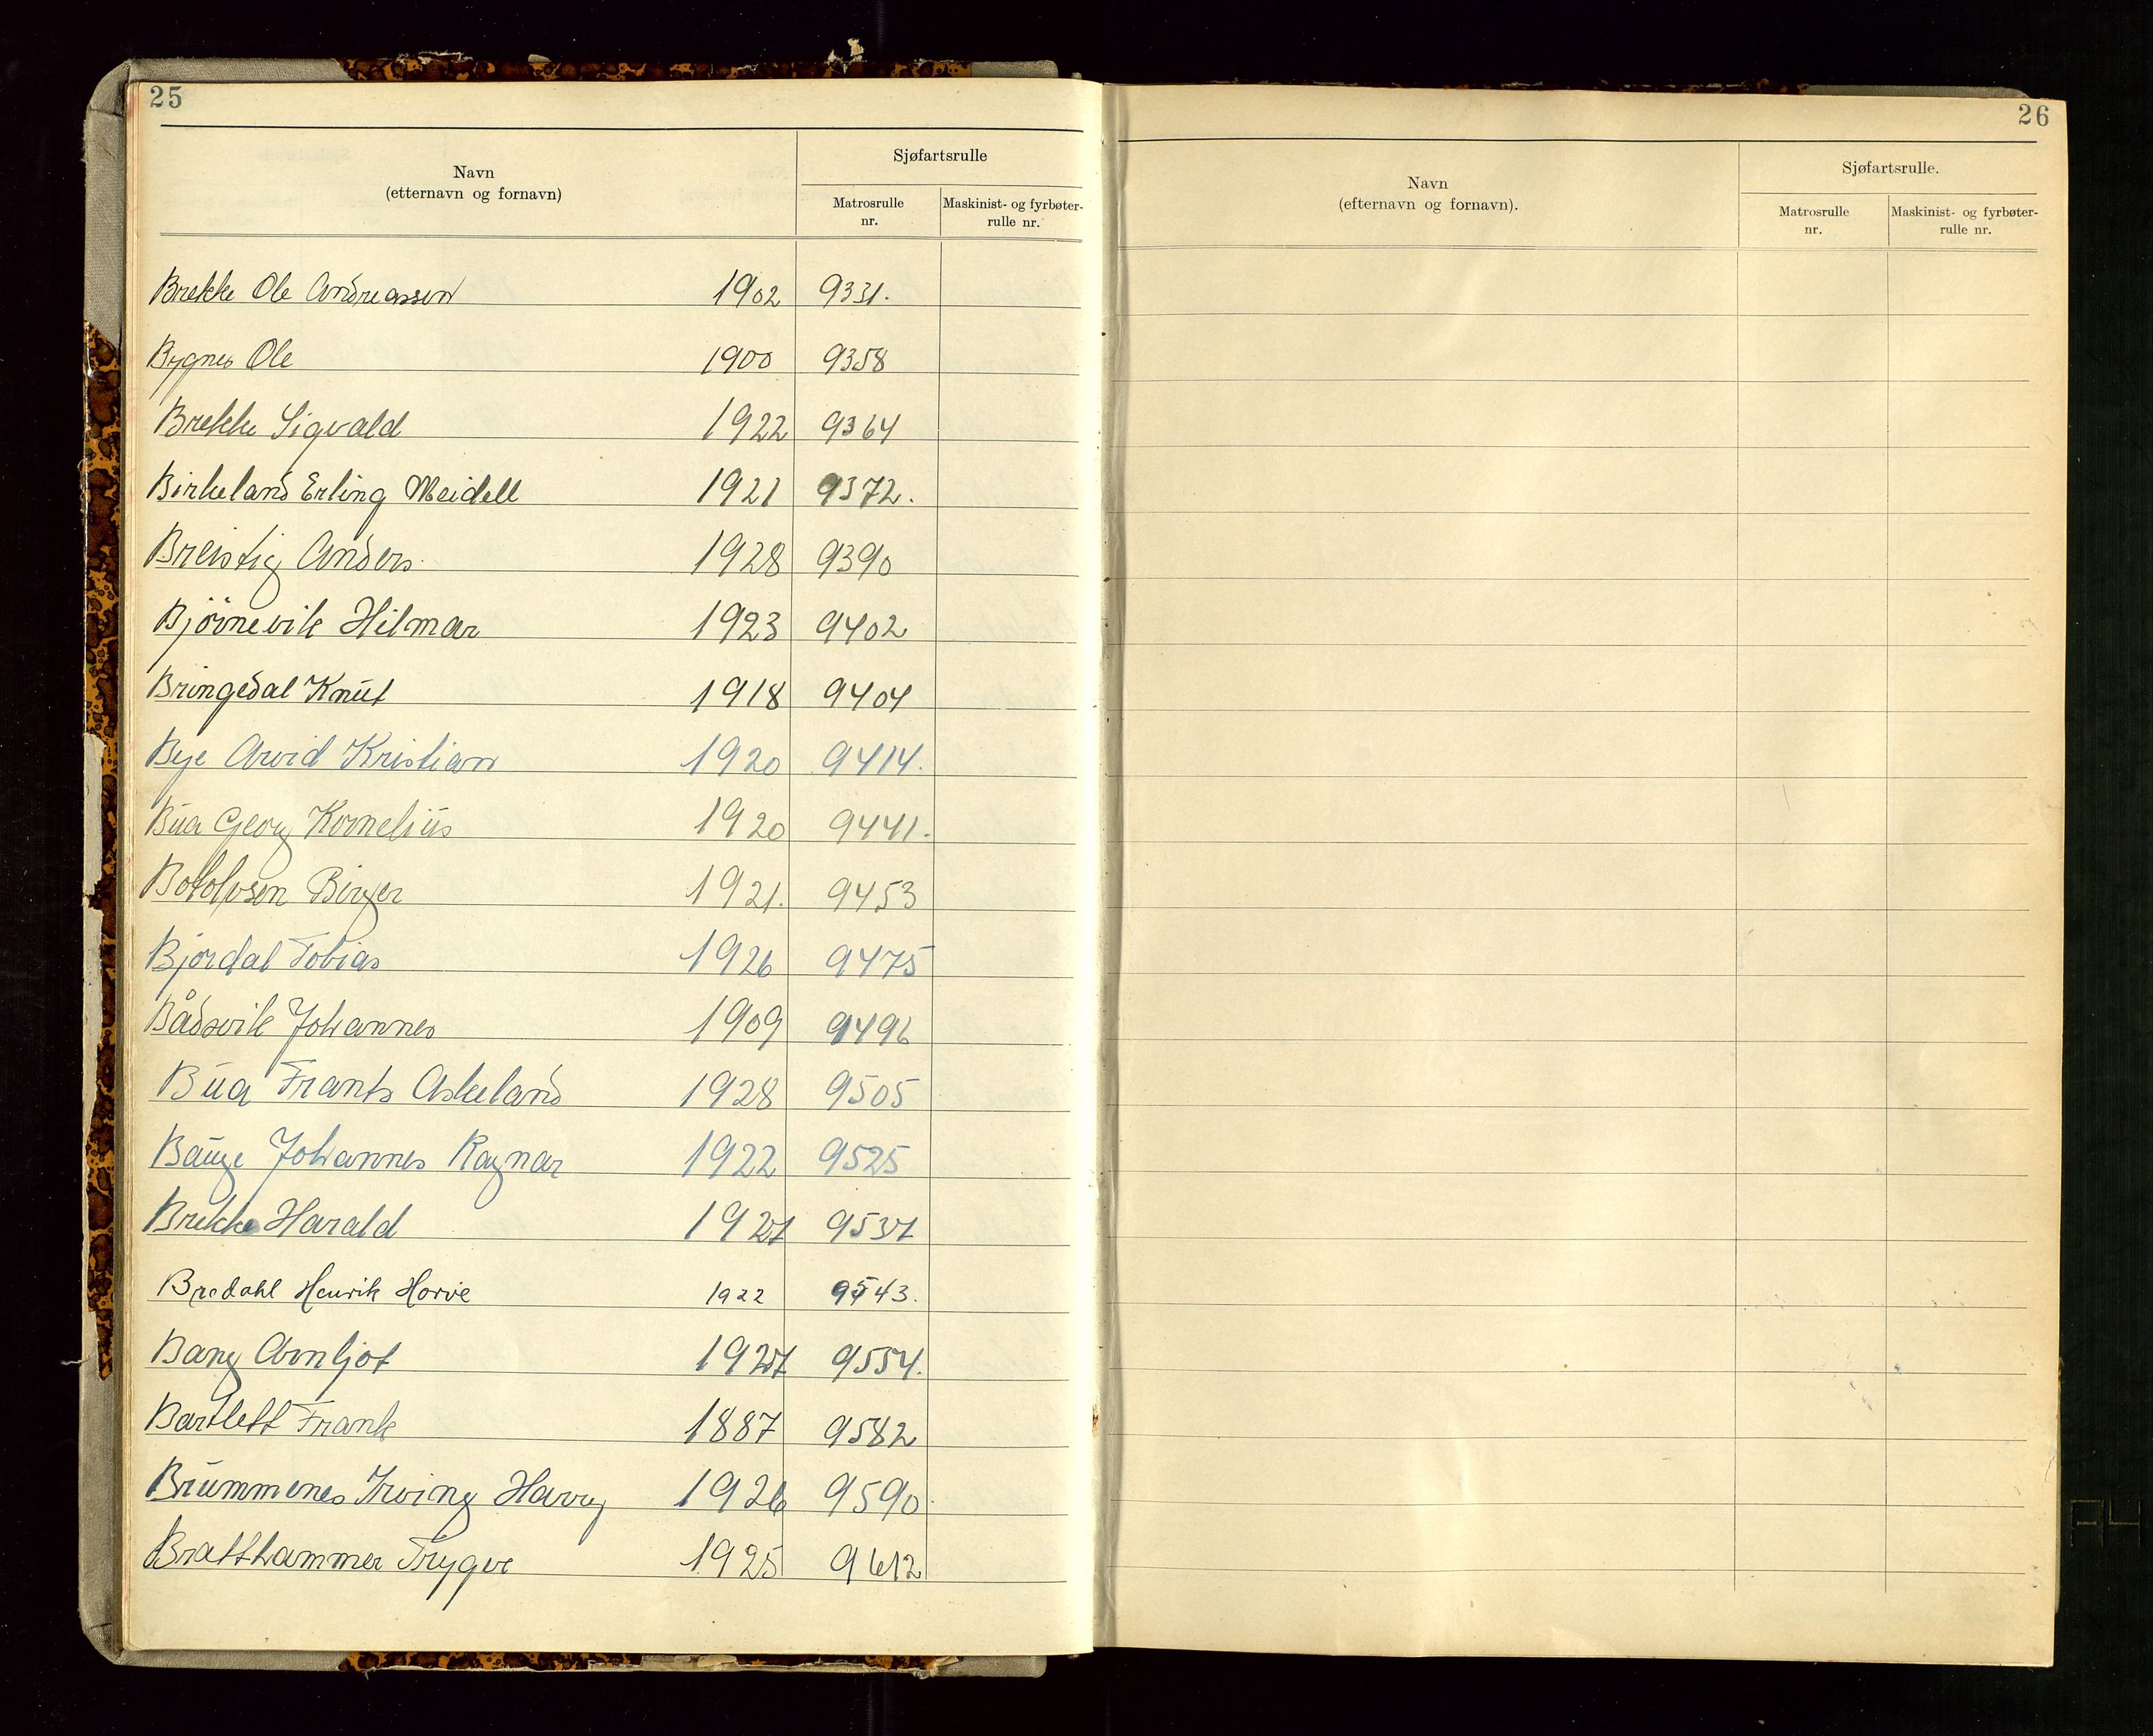 25
Navn
(etternavn og fornavn)
Sjøfartsrulle
Matrosrulle nr.
Maskinist- og fyrbøter-rulle nr.
Brekke Ole Andreassen 1902 9331.
Bygnes Ole 1900 9358
Brekke Sigvald 1922 9364
Birkeland Erling Meidell 1921 9372.
Breistig Anders. 1928 9390
Bjørnevik Hilmar 1923 9402
Bringedal Knut 1918 9404
Bye Arvid Kristian 1920 9414.
Bua Georg Kornelius 1920 9441.
Botolvsen Birger 1921. 9453
Bjordal Tobias 1926 9475
Bådsvik Johannes 1909 9496
Bua Frants Askeland 1928 9505
Bauge Johannes Ragnar 1922 9525
Brekke Harald 1927 9537
Bredahl Henrik Horve 1922 9543.
Bang Arnljot 1927 9554.
Bartlett Frank 1887 9582
Brummenes Irving Harry 1926 9590.
Bratthammer Trygve 1925 9612
26
Navn
(efternavn og fornavn).
Sjøfartsrulle.
Matrosrulle nr.
Maskinist- og fyrbøter-rulle nr.